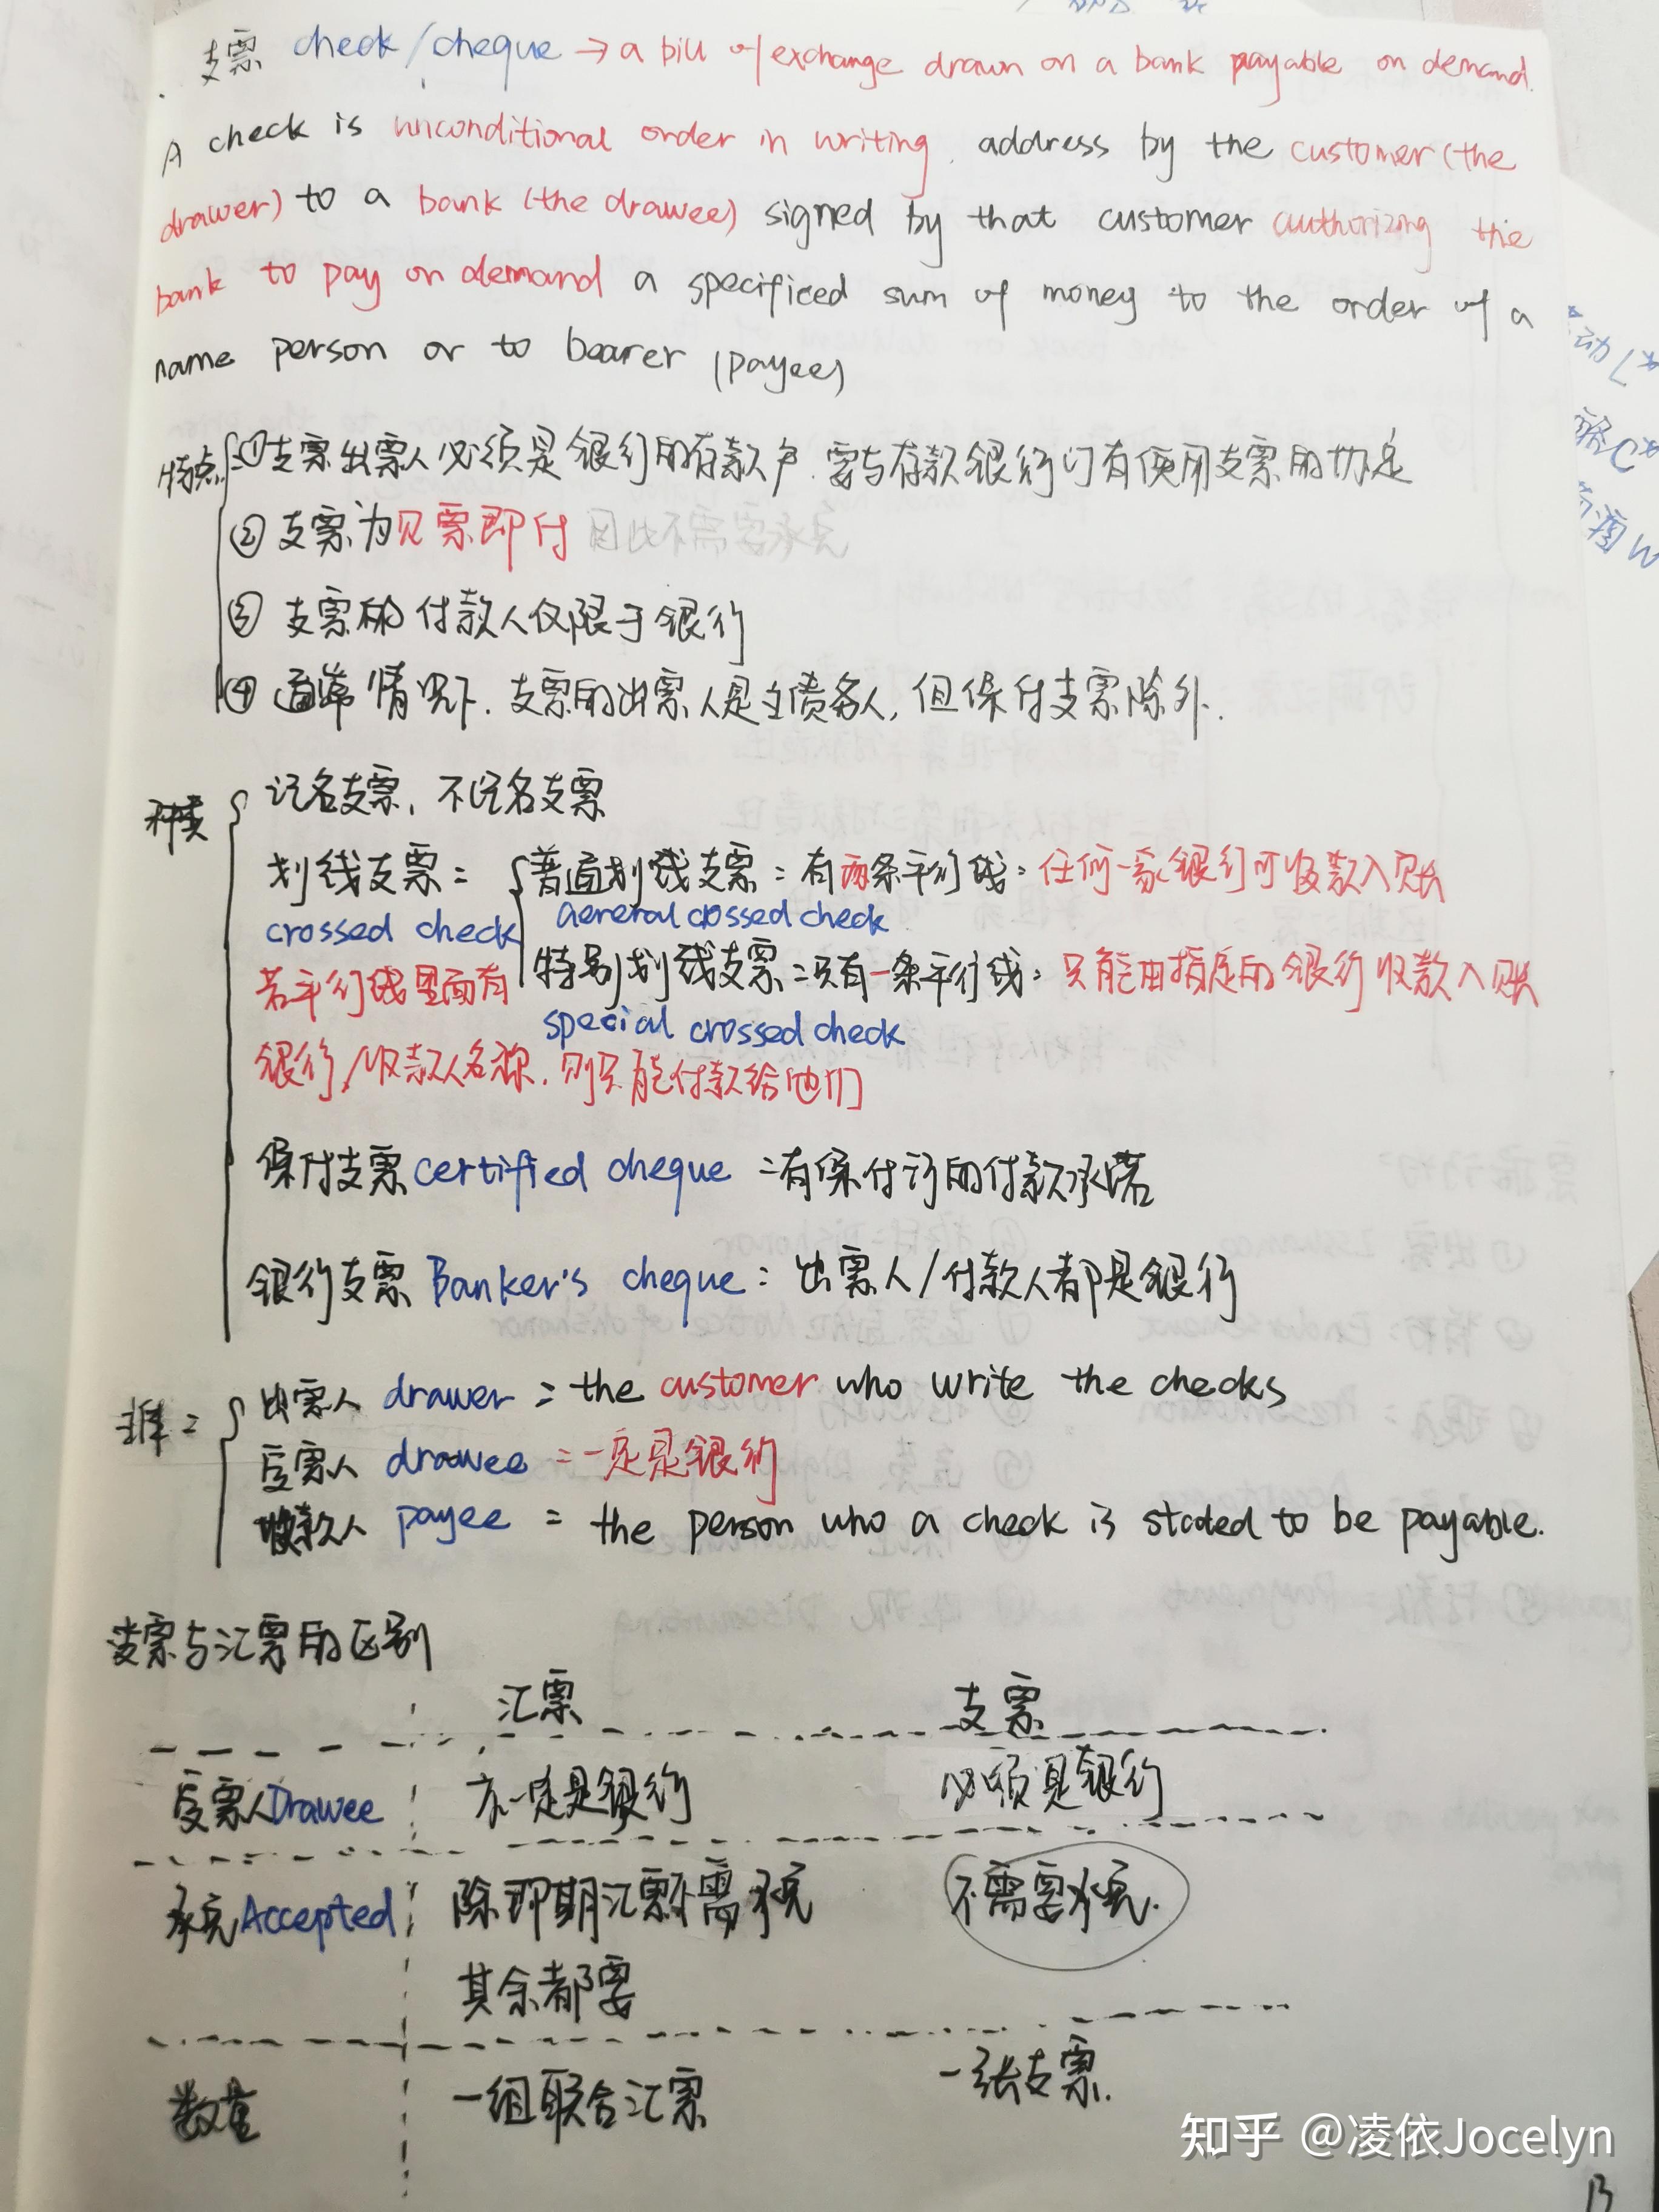 支票 check/cheque → a bill of exchange drawn on a bank payable on demand.
A check is unconditional order in writing, address by the customer (the
drawer) to a bank (the drawee) signed by that customer authorizing the
bank to pay on demand a specificed sum of money to the order of a
name person or to bearer (payee)
特点: ①支票出票人必须是银行的存款户.要与存款银行订有使用支票的协定
② 支票为见票即付 因此不需要承兑
③ 支票的付款人仅限于银行
④ 通常情况下.支票的出票人是主债务人,但保付支票除外.
种类 记名支票,不记名支票
划线支票: 普通划线支票:有两条平行线:任何一家银行可收款入账
crossed check General crossed check
若平行线里面有 特别划线支票:只有一条平行线:只能由指定的银行收款入账
special crossed check
银行/收款人名称.则只能付款给他们
保付支票 certified cheque :有保付行的付款承诺
银行支票 Banker's cheque: 出票人/付款人都是银行
出票人 drawer = the customer who write the checks
受票人 drawee = 一定是银行
收款人 payee = the person who a check is stated to be payable.
支票与汇票的区别
汇票 支票
受票人Drawee 不一定是银行 必须是银行
承兑Accepted 除即期汇票不需承兑 不需要承兑.
其余都要
数量 一组联合汇票 一张支票.
知乎 @凌依Jocelyn